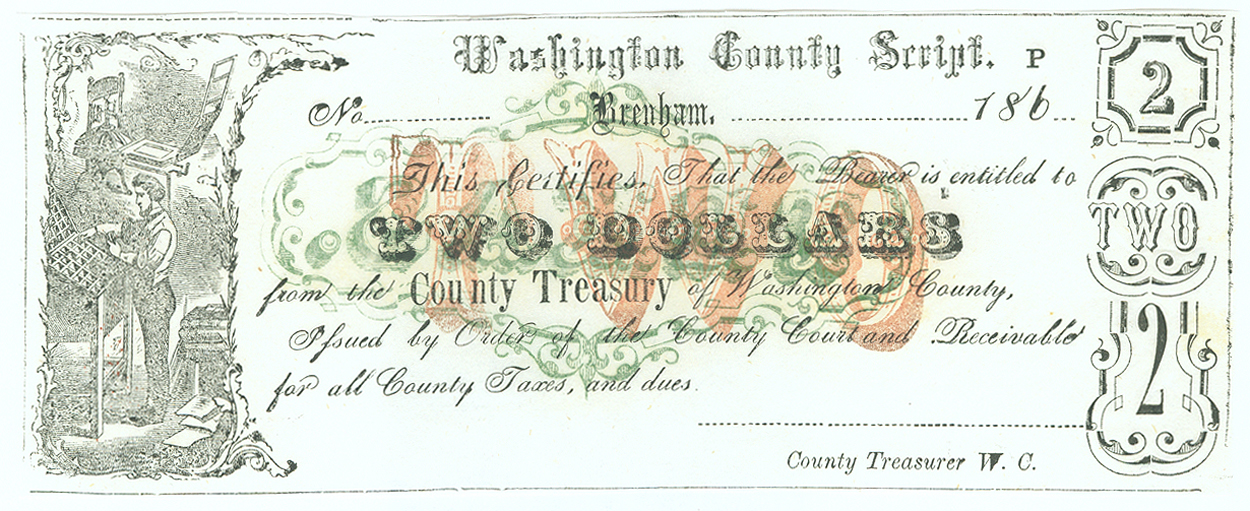 Washington County Script. P
2
No. Brenham. 186
TWO
This Certifies, That the Bearer is entitled to
TWO DOLLARS
TWO
from the County Treasury of Washington County,
Issued by Order of the County Court and Receivable
2
for all County Taxes, and dues.
County Treasurer W. C.